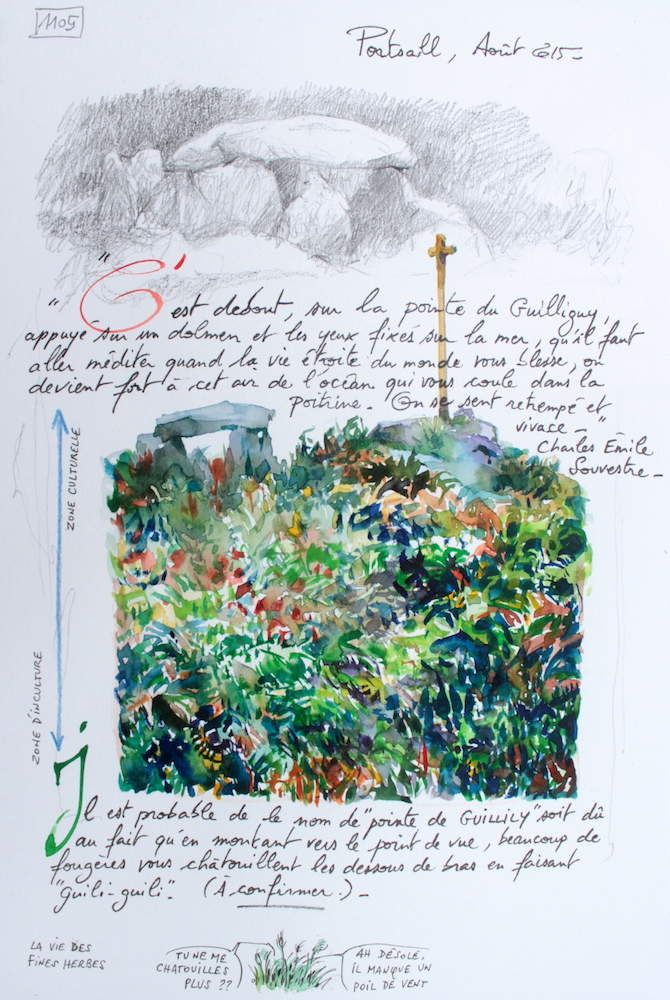 1105
Portsall, Août 2015 -
" "C'est debout, sur la pointe du Guilliguy,
appuyé sur un dolmen et les yeux fixés sur la mer, qu'il faut
aller méditer quand la vie étroite du monde vous blesse, on
devient fort à cet air de l'océan qui vous coule dans la
poitrine. On se sent retrempé et
vivace - "
Charles Émile
Souvestre -
ZONE CULTURELLE
ZONE D'INCULTURE
Il est probable de le nom de "pointe de GUILLILY" soit dû
au fait qu'en montant vers le point de vue, beaucoup de
fougères vous chatouillent les dessous de bras en faisant
"guili-guili". (À confirmer.) -
LA VIE DES
FINES HERBES
TU NE ME
CHATOUILLES
PLUS ??
AH DÉSOLÉ,
IL MANQUE UN
POIL DE VENT